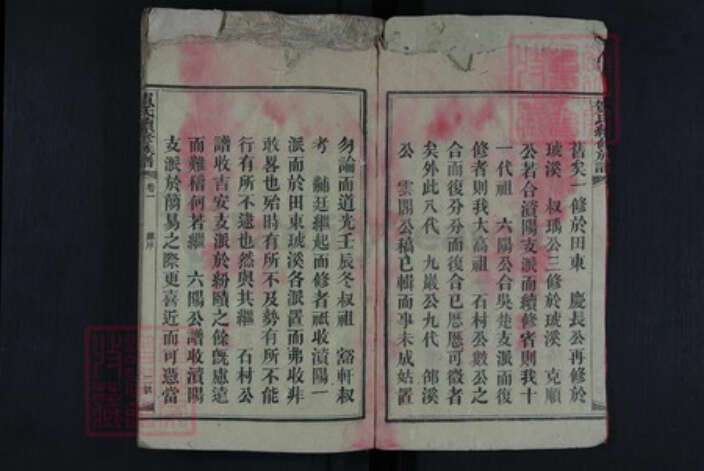 舊矣一修於田東　慶長公再修於
琥溪　叔瑀公三修於琥溪　克順
公若合瀆陽支派而續修者則我十
一代祖　六陽公合吳楚支派而復
修者則我大高祖　石村公數公之
合而復分分而復合已歷歷可徵者
矣外此八代　九巖公九代　郃溪
公　雲閣公稿已輯而事未成姑置
勿論而道光壬辰冬叔祖　谿軒叔
考　黼廷繼起而修者祗收瀆陽一
派而於田東琥溪各派置而弗收非
敢畧也殆時有所不及勢有所不能
行有所不逮也然與其繼　石村公
譜收吉安支派於紛賾之餘旣慮遠
而難稽何若繼　六陽公譜收瀆陽
支派於簡易之際更喜近而可憑當
卷一